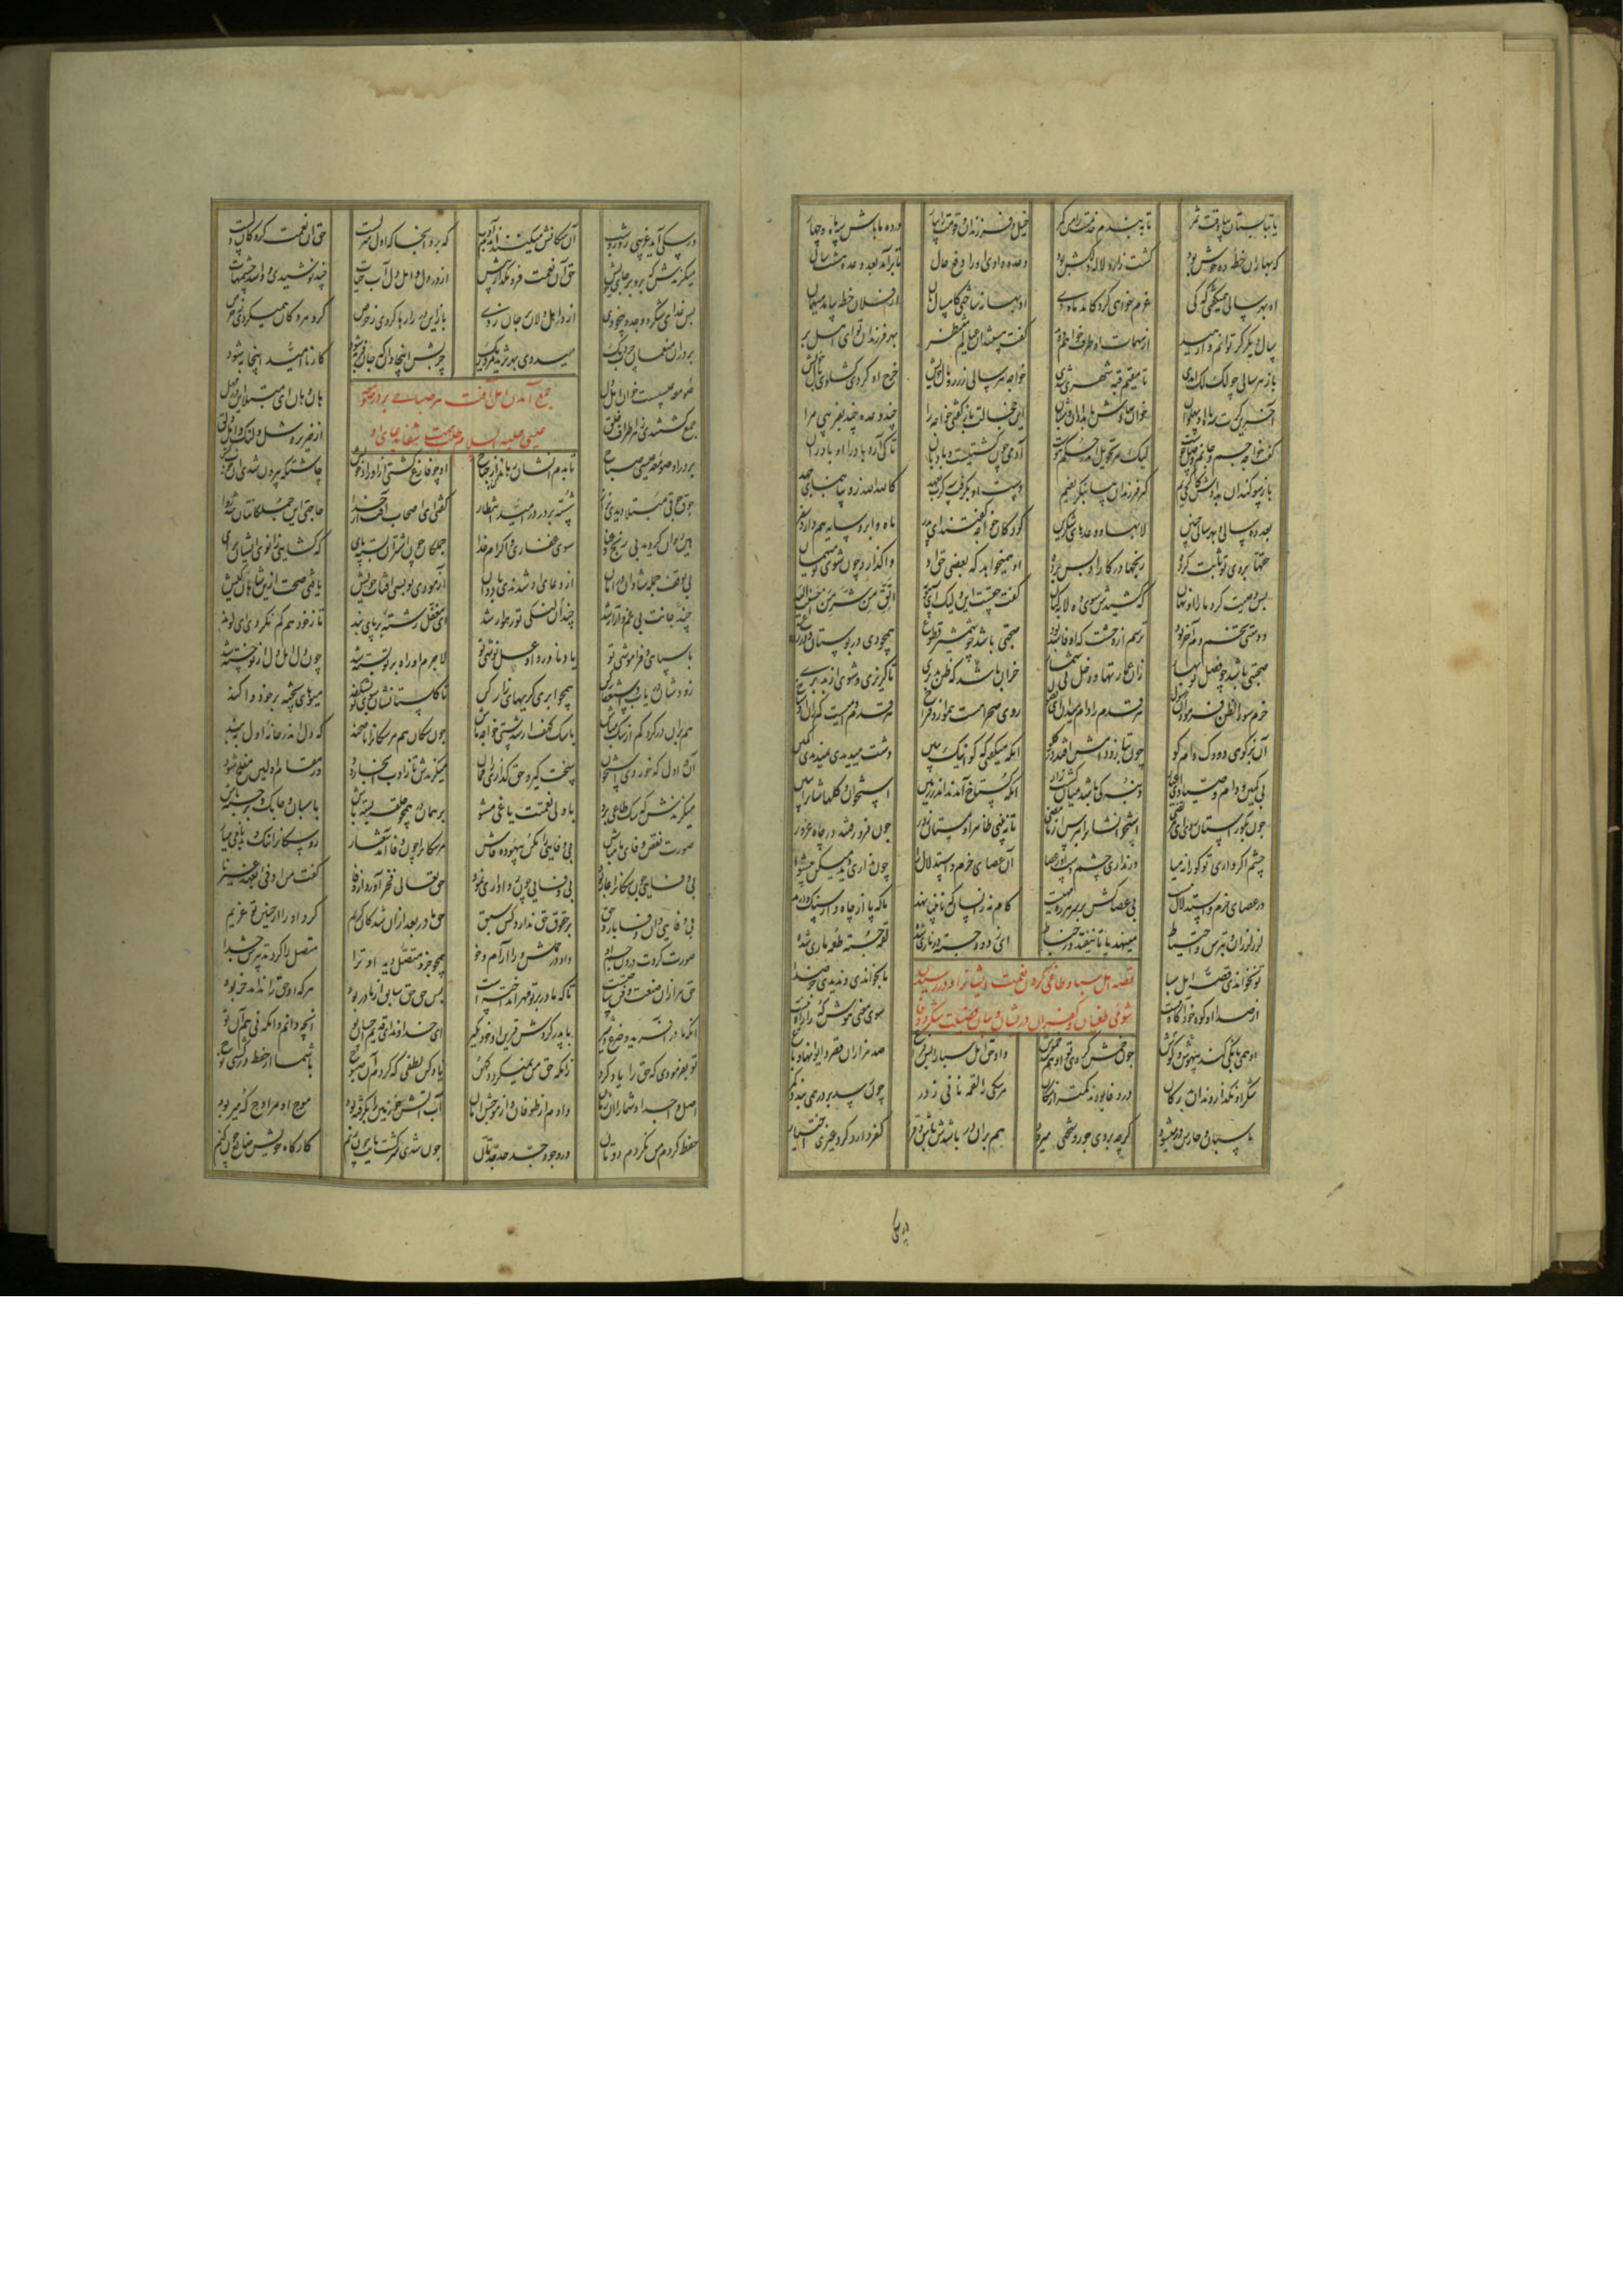 یا بتابستان بیا وقت ثمر تا ببندم خدمتت را من کمر خیل و فرزندان و قومت را بیار در ده ما باش سه ماه و چهار
که بهاران خطه ده خوش بود کشت زار و لاله دلکش بود وعده دادی او را دفع حال تا برآمد بعد وعده هشت سال
او بهر سالی همیگفتی که کی عزم خواهی کرد کامد ماه دی او بهانه ساختی کامسال مان از فلان خطه بیامد میهمان
سال دیگر گر توانم وارهید از مهمات آن طرف خواهم دوید گفت هستند آن عیالم منتظر بهر فرزندان تو ای اهل بر
باز هر سالی چو لکلک آمدی تا مقیم قبه شهری شدی خواجه هر سالی ز زر و مال خویش خرج او کردی گشادی بال خویش
آخرین کرت سه ماه آن پهلوان خوان نهادش بامدادان و شبان از خجالت باز گفت او خواجه را چند وعده چند بفریبی مرا
گفت خواجه جسم و جانم وصل جوست لیک هر تحویل اندر حکم هوست آدمی چون کشتیست و بادبان تا کی آرد باد را آن بادران
باز سوگندان بدادش کای کریم گیر فرزندان بیا بنگر نعیم دست او بگرفت سه کرت بعهد کالله الله زو بیا بنمای جهد
بعد ده سال و بهر سالی چنین لابها و وعدهای شکرین کودکان خواجه گفتند ای پدر ماه و ابر و سایه هم دارد سفر
حقها بر وی تو ثابت کرده رنجها در کار او بس برده او همیخواهد که بعضی حق آن واگذارد چون شوی تو میهمان
بس وصیت کرد ما را او نهان که کشیدش سوی ده لابه کنان گفت حقست این ولیک ای سیبویه اتق من شر من احسنت الیه
دوستی تخم دم آخر بود ترسم از وحشت که آن فاسد شود صحبتی باشد چو شمشیر قطوع همچو دی در بوستان و در زروع
صحبتی باشد چو فصل نوبهار زان عمارتها و دخل بی شمار حزم آن باشد که ظن بد بری تا گریزی و شوی از بد بری
حزم سوء الظن فرمود آن رسول هر قدم را دام میدان ای فضول روی صحرا هست هموار و فراخ هر قدم دامیست کم ران اوستاخ
آن بز کوهی دود که دام کو چون بتازد دامش افتد در گلو آنکه میگفتی که کو اینک ببین دشت میدیدی نمیدیدی کمین
بی کمین و دام و صیاد ای عیار دنبه کی باشد میان کشت زار آنکه گستاخ آمدند اندر زمین استخوان و کلهاشان را ببین
چون بگورستان روی ای مرتضی استخوانشان را بپرس از ما مضی تا ببینی ظاهر آن مستان کور چون فرو رفتند در چاه غرور
چشم اگر داری تو کورانه میا ور نداری چشم دست آور عصا آن عصای حزم و استدلال را چون نداری دید میکن پیشوا
ور عصای حزم و استدلال نیست بی عصاکش بر سر هر ره مایست گام زان سان نه که نابینا نهد تا که پا از چاه و از سگ وارهد
لرز لرزان و بترس و احتیاط مینهد پا تا نیفتد در خباط ای ز دودی جسته در ناری شده لقمه جسته لقمه ماری شده
قصه اهل سبا و طاغی کردن نعمت ایشانرا و در رسیدن
شومی طغیان و کفران در ایشان و بیان فضیلت شکر و وفا
تو نخواندی قصه اهل سبا یا بخواندی و ندیدی جز صدا
از صدا آن کوه خود آگاه نیست سوی معنی هوش که را راه نیست
او همی بانگی کند بی هوش و گوش چون خمش کردی تو او هم شد خموش داد حق اهل سبا را بس فراغ صد هزاران قصر و ایوانها و باغ
شکر آن نگزاردند آن بد رگان در وفا بودند کمتر از سگان مر سگی را لقمه نانی ز در چون رسد بر در همی بندد کمر
پاسبان و حارس در میشود گرچه بر وی جور و سختی میرود هم بر آن در باشدش باش و قرار کفر دارد کرد غیری اختیار
ور سگی
ور سگی آید غریبی روز و شب آن سگانش میکنند آن دم ادب که برو آنجا که اول منزلست حق آن نعمت گروگان دلست
میگزندش که برو بر جای خویش حق آن نعمت فرو مگذار بیش از در دل و اهل دل آب حیات چند نوشیدی و وا شد چشمهات
بس غذای سکر و وجد و بیخودی از در اهل دلان بر جان زدی باز این در را رها کردی ز حرص گرد هر دکان همیگردی چو خرس
بر در آن منعمان چرب دیگ میدوی بهر ثرید مرده ریگ چربش اینجا دان که جان فربه شود کار ناامید اینجا به شود
جمع آمدن اهل آفت هر صباحی بر در صومعه
عیسی علیه السلام و طلب شفا بدعای او
صومعه عیسیست خوان اهل دل هان و هان ای مبتلا این در مهل
جمع گشتندی ز هر اطراف خلق از ضریر و شل و لنگ و اهل دلق
بر در آن صومعه عیسی صباح تا بدم ایشان رهاند از جناح او چو فارغ گشتی از اوراد خویش چاشتگه بیرون شدی آن خوب کیش
جوق جوقی مبتلا دیدی نزار شسته بر در در امید و انتظار گفتی ای اصحاب آفت از خدا حاجت این جملگانتان شد روا
هین روان گردید بی رنج و عنا سوی غفاری و اکرام خدا جملگان چون اشتران بسته پای که گشایی زانوی ایشان برای
بی توقف جمله شادان در امان از دعای او شدندی پا دوان آزمودی تو بسی آفات خویش یافتی صحت ازین شاهان کیش
چند جانت بی غم و آزار شد چند آن لنگی تو رهوار شد ای مغفل رشته بر پای بند تا ز خود هم گم نگردی ای لوند
ناسپاسی و فراموشی تو یاد ناورد آن عسل نوشی تو لاجرم آن راه بر تو بسته شد چون دل اهل دل از تو خسته شد
زودشان دریاب و استغفار کن همچو ابری گریهای زار کن تا گلستانشان سوی تو بشکفد میوهای پخته بر خود وا کفد
هم بر آن در گرد کم از سگ مباش با سگ کهف ار شدستی خواجه تاش چون سگان هم مر سگانرا ناصحند که دل اندر خانه اول ببند
آن در اول که خوردی استخوان سخت گیر و حق گذار آن را ممان میگزندش تا ز ادب آنجا رود وز مقام اولین مفلح شود
میگزندش کای سگ طاغی برو با ولی نعمتت یاغی مشو بر همان در همچو حلقه بسته باش پاسبان و چابک و برجسته باش
صورت نقض وفای ما مباش بی وفایی را مکن بیهوده فاش مر سگانرا چون وفا آمد شعار رو سگانرا ننگ و بدنامی میار
بی وفایی چون سگانرا عار بود بی وفایی چون روا داری نمود حق تعالی فخر آورد از وفا گفت من اوفی بعهد غیرنا
بی وفایی دان وفا با رد حق بر حقوق حق ندارد کس سبق حق مادر بعد از آن شد کان کریم کرد او را از جنین تو غریم
صورتی کردت درون جسم او داد در حملش ورا آرام و خو همچو جزو متصل دید او ترا متصل را کرد تدبیرش جدا
حق هزاران صنعت و فن ساختست تا که مادر بر تو مهر انداختست پس حق حق سابق از مادر بود هر که آن حق را نداند خر بود
آنکه مادر آفرید و ضرع و شیر با پدر کردش قرین آن خود مگیر ای خداوند ای قدیم احسان تو آنچه دانم وانکه نی هم آن تو
تو بفرمودی که حق را یاد کن زانکه حق من نمیگردد کهن یاد کن لطفی که کردم آن صبوح با شما از حفظ در کشتی نوح
اصل و اجداد شما را آن زمان دادم از طوفان و از موجش امان آب آتش خو زمین بگرفته بود موج او مر اوج که را میربود
حفظ کردم من نکردم ردتان در وجود جد جد جدتان چون شدی سر پشت پایت چون زنم کارگاه خویش ضایع چون کنم